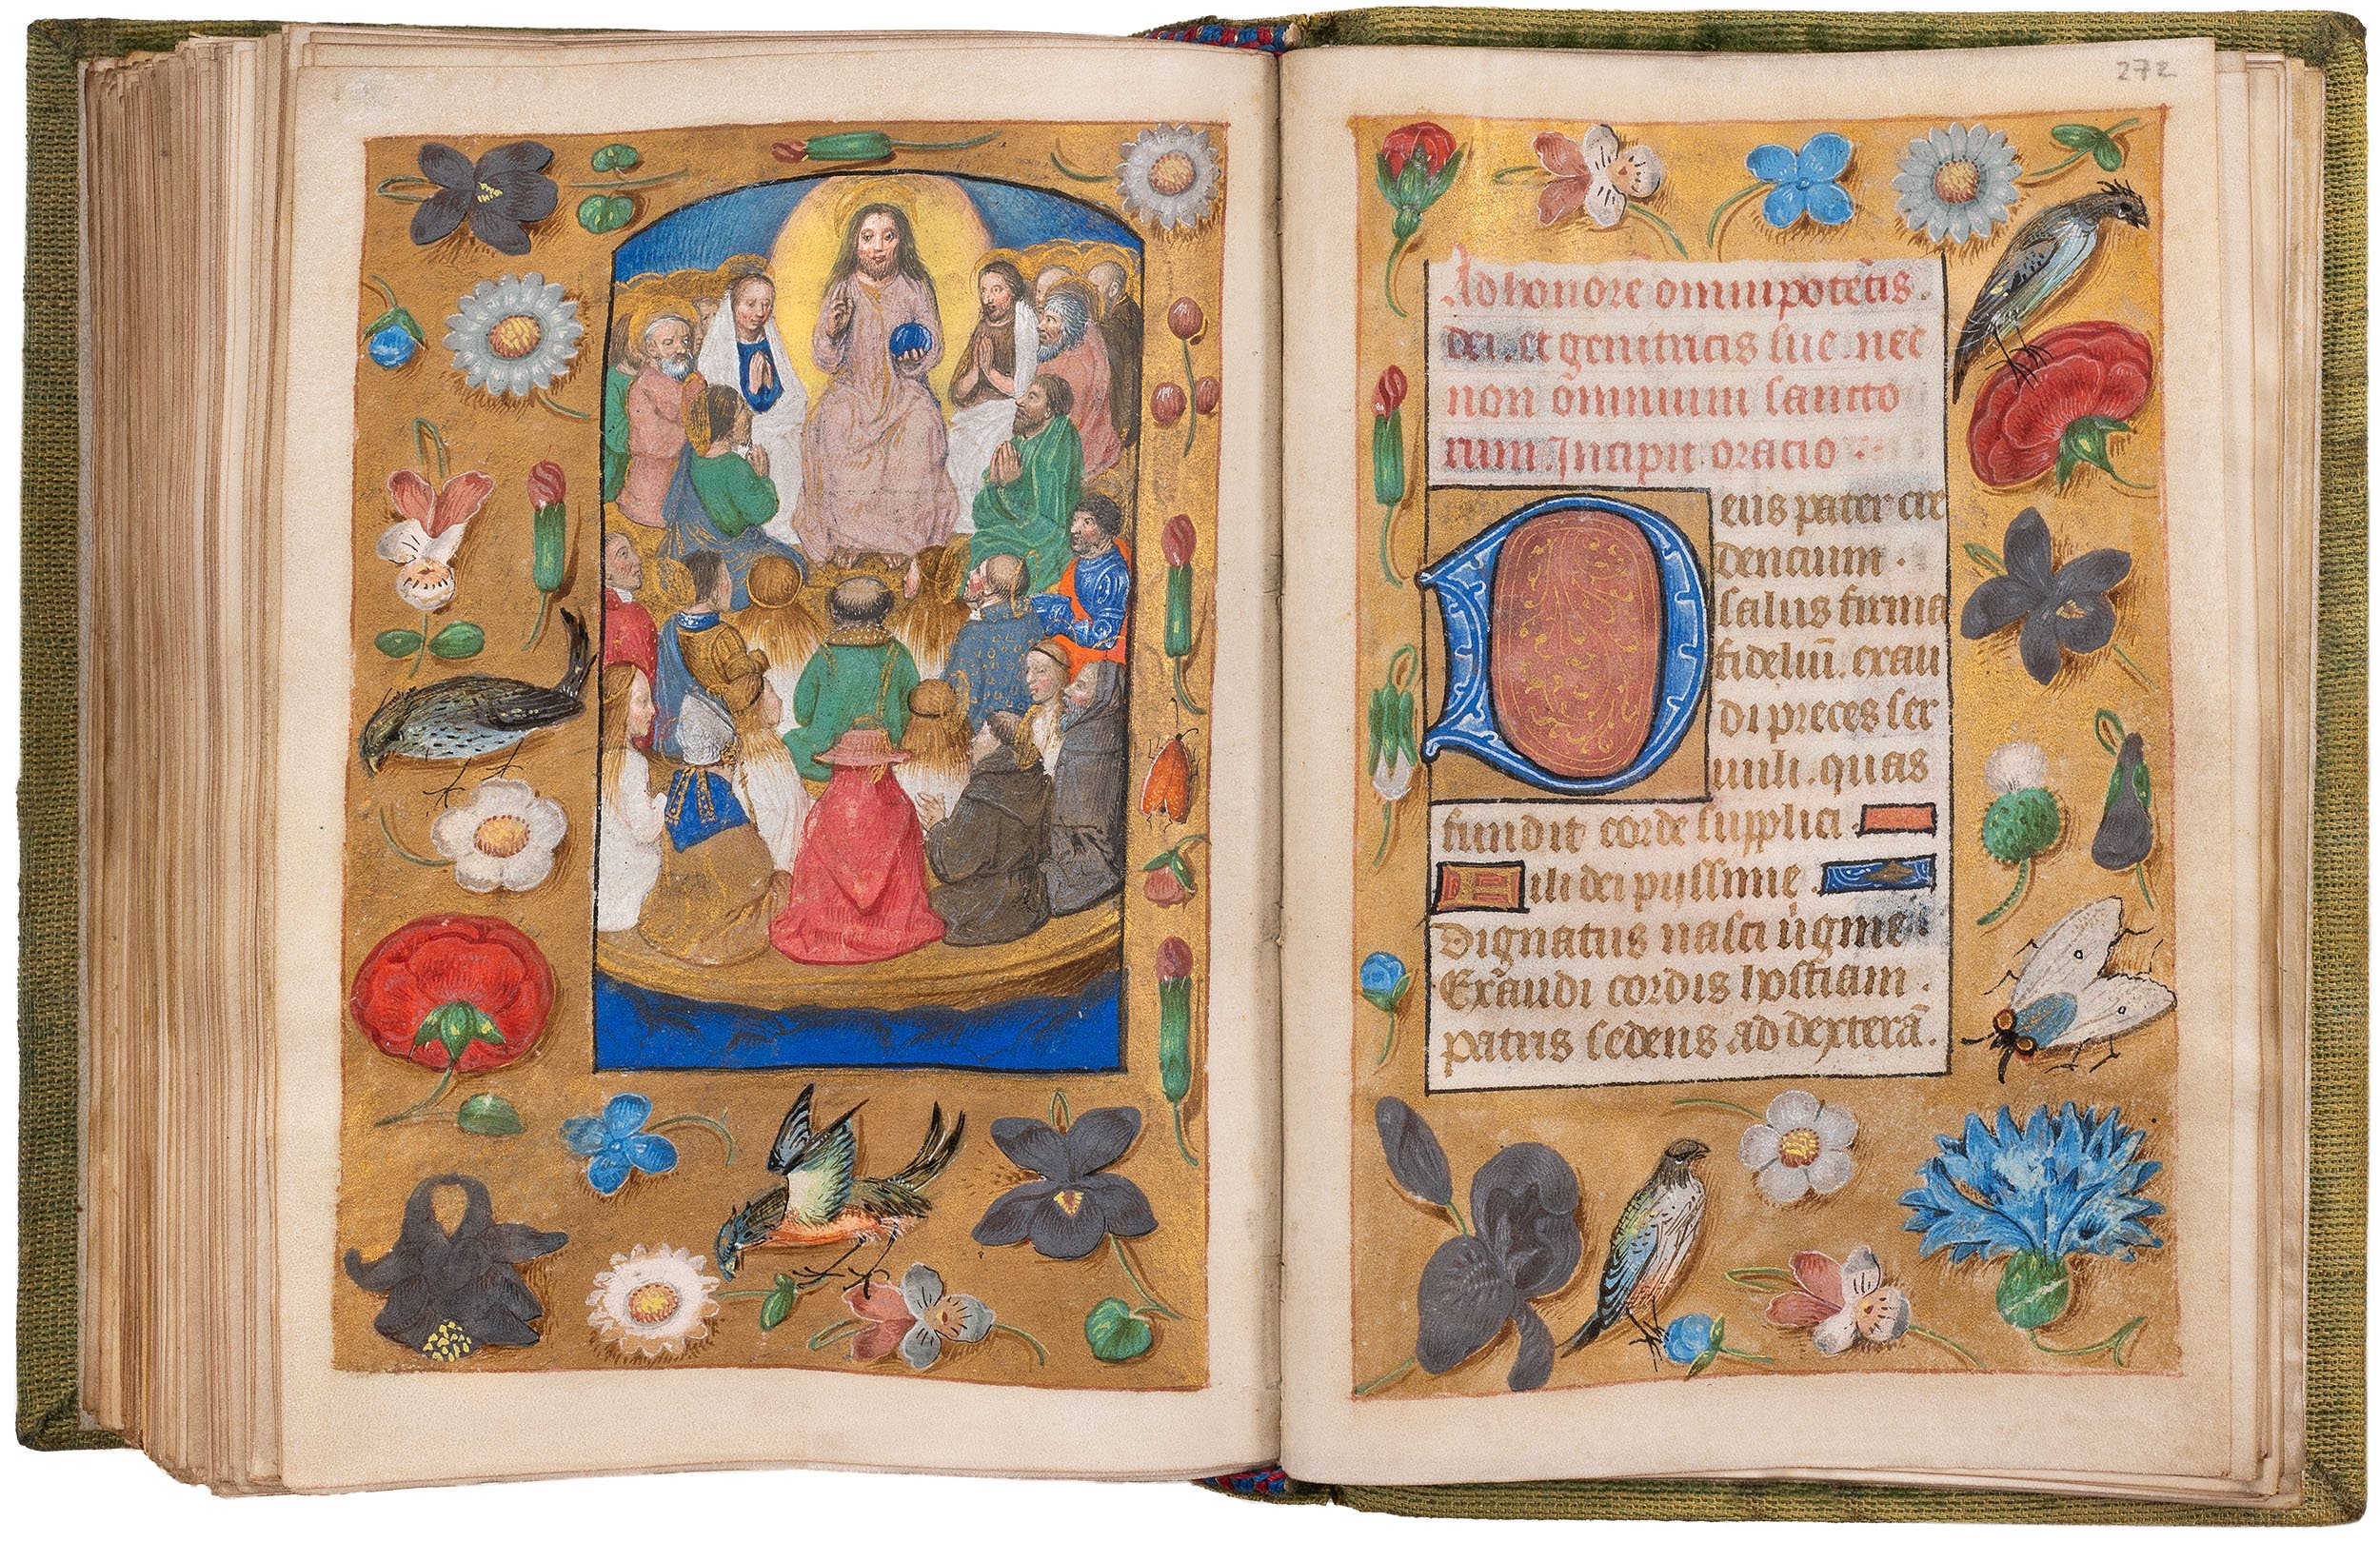 272
Ad honorē omnipotētis.
dei. et genitricis sue. nec
non om̄nium sancto
rum. Incipit oracio
Deus pater cre
dencium.
salus firma
fideliū. exau
di preces ser
uuli. quas
fundit corde supplici.
Fili dei pijssime.
Dignatus nasci ūgine
Exaudi cordis hostiam.
patris sedens ad dexterā.